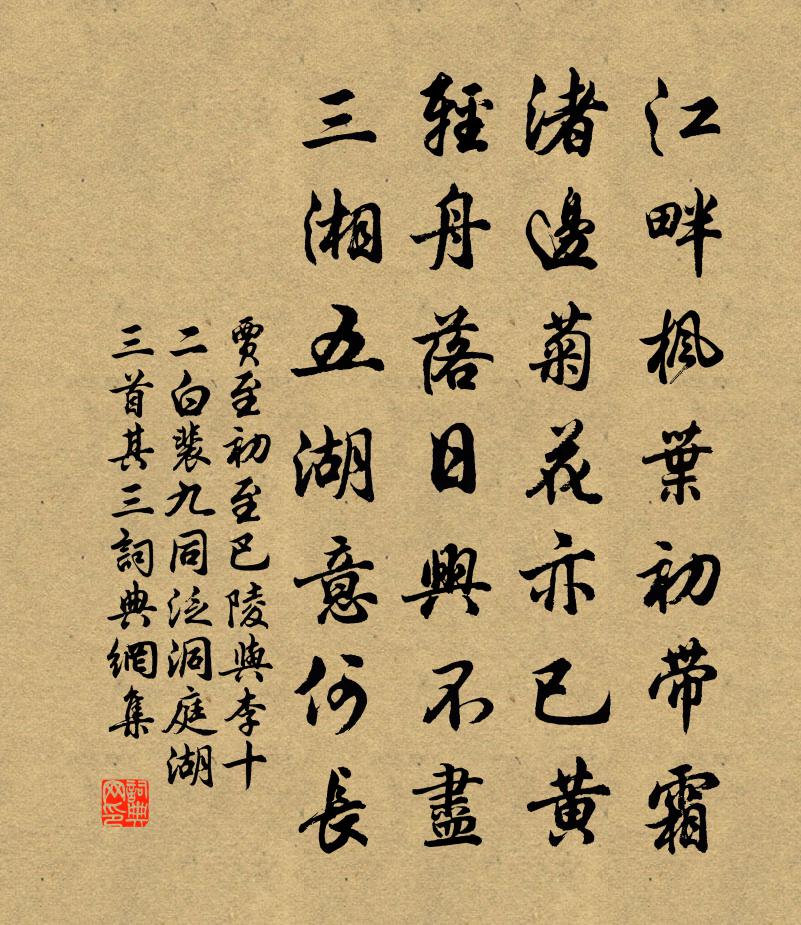 江畔楓葉初帶霜
渚邊菊花亦已黃
輕舟落日興不盡
三湘五湖意何長
賈至初至巴陵與李十
二白裴九同泛洞庭湖
三首其三詞典網集
詞典
网印